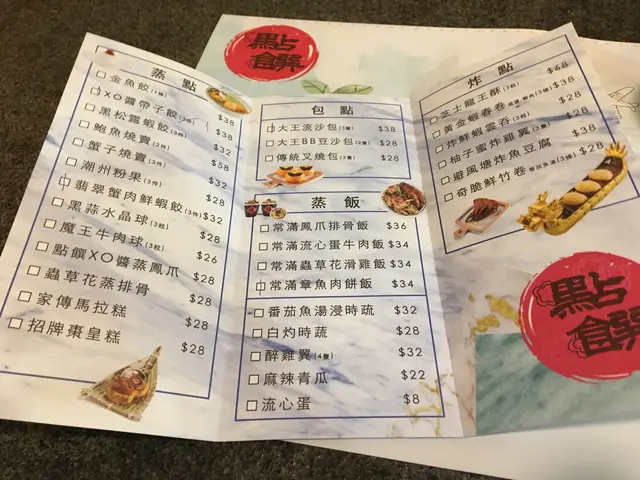 點饌
蒸點
金魚餃(1條) $38
XO醬帶子餃(3件) $38
黑松露蝦餃(3件) $38
鮑魚燒賣(2件) $32
蟹子燒賣(3件) $58
潮州粉果(3件) $32
翡翠蟹肉鮮蝦餃(3件) $32
黑蒜水晶球(3粒) $28
魔王牛肉球(3粒) $28
點饌XO醬蒸鳳爪 $26
蟲草花蒸排骨 $28
家傳馬拉糕 $28
招牌棗皇糕 $28
包點
大王流沙包(3隻) $38
大王BB豆沙包(2隻) $28
傳統叉燒包(3隻) $28
蒸飯
常滿鳳爪排骨飯 $36
常滿流心蛋牛肉飯 $34
常滿蟲草花滑雞飯 $34
常滿章魚肉餅飯 $34
番茄魚湯浸時疏 $32
白灼時蔬 $28
醉雞翼(4隻) $32
麻辣青瓜 $22
流心蛋 $8
炸點
芝士龍王酥(3粒) $68
黃金蝦春卷 $38
炸鮮蝦雲吞(3粒) $38
柚子蜜炸雞翼 $28
避風塘炸魚豆腐 $38
奇脆鮮竹卷 $28
點饌